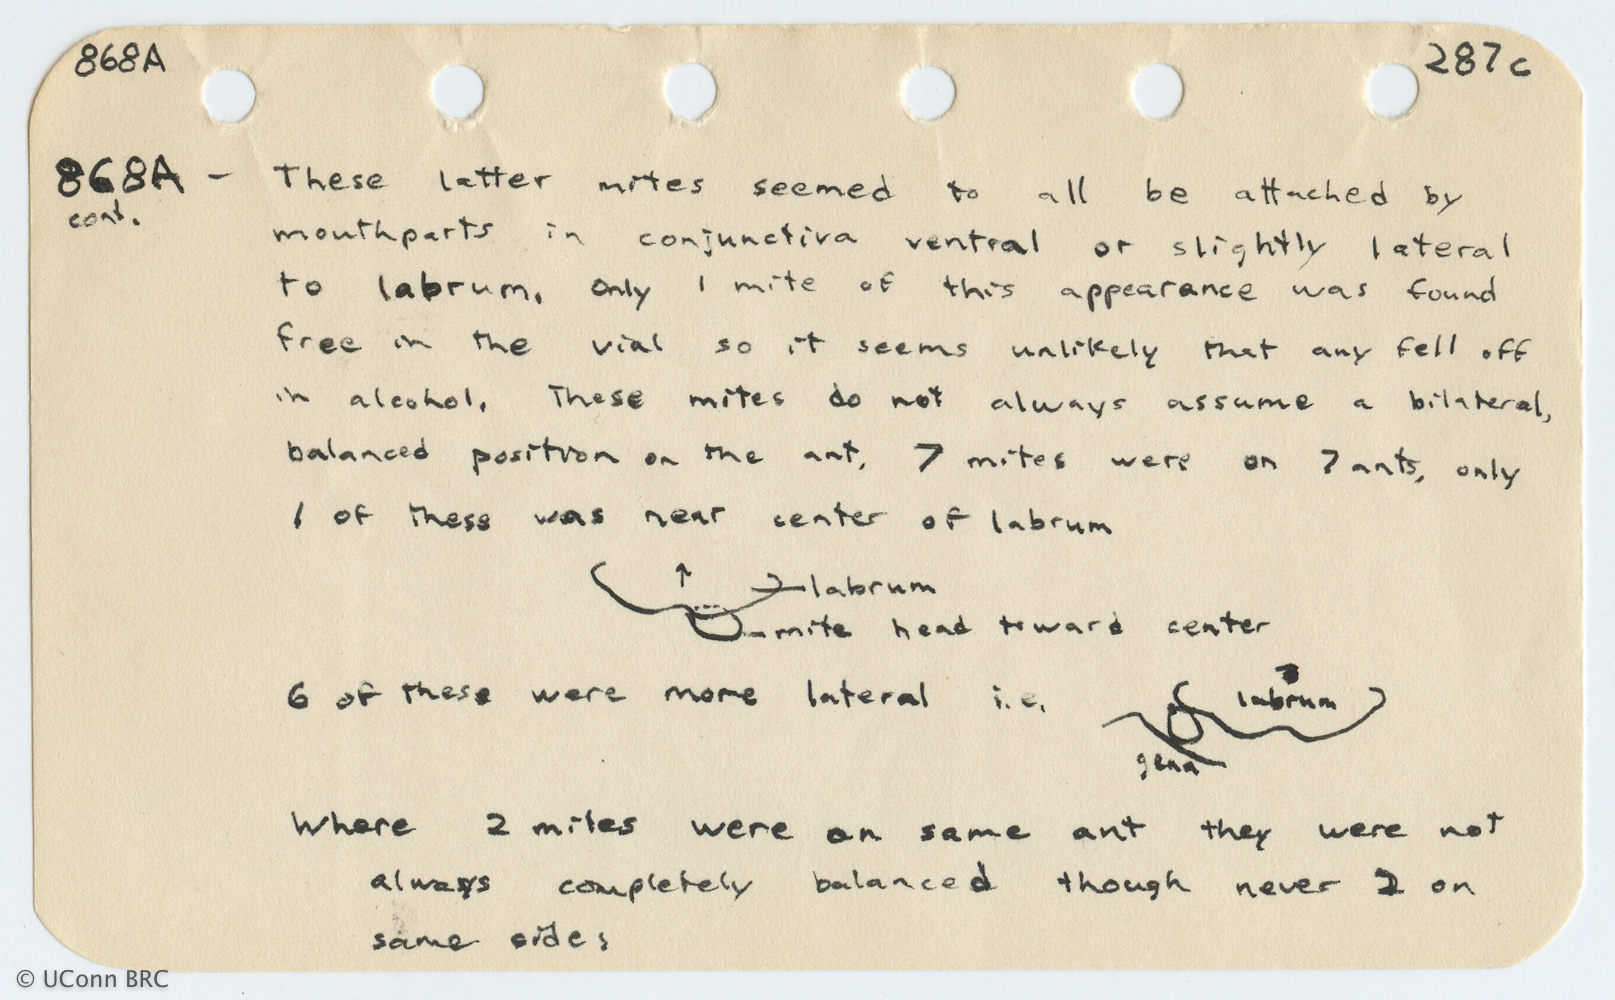 868A 287c
868A - These latter mites seemed to all be attached by
cont.
mouthparts in conjunctiva ventral or slightly lateral
to labrum. Only 1 mite of this appearance was found
free in the vial so it seems unlikely that any fell off
in alcohol. These mites do not always assume a bilateral,
balanced position on the ant. 7 mites were on 7 ants, only
1 of these was near center of labrum
labrum
mite head toward center
6 of these were more lateral i.e.
labrum
gena
Where 2 mites were on same ant they were not
always completely balanced though never 2 on
same side;
© UConn BRC